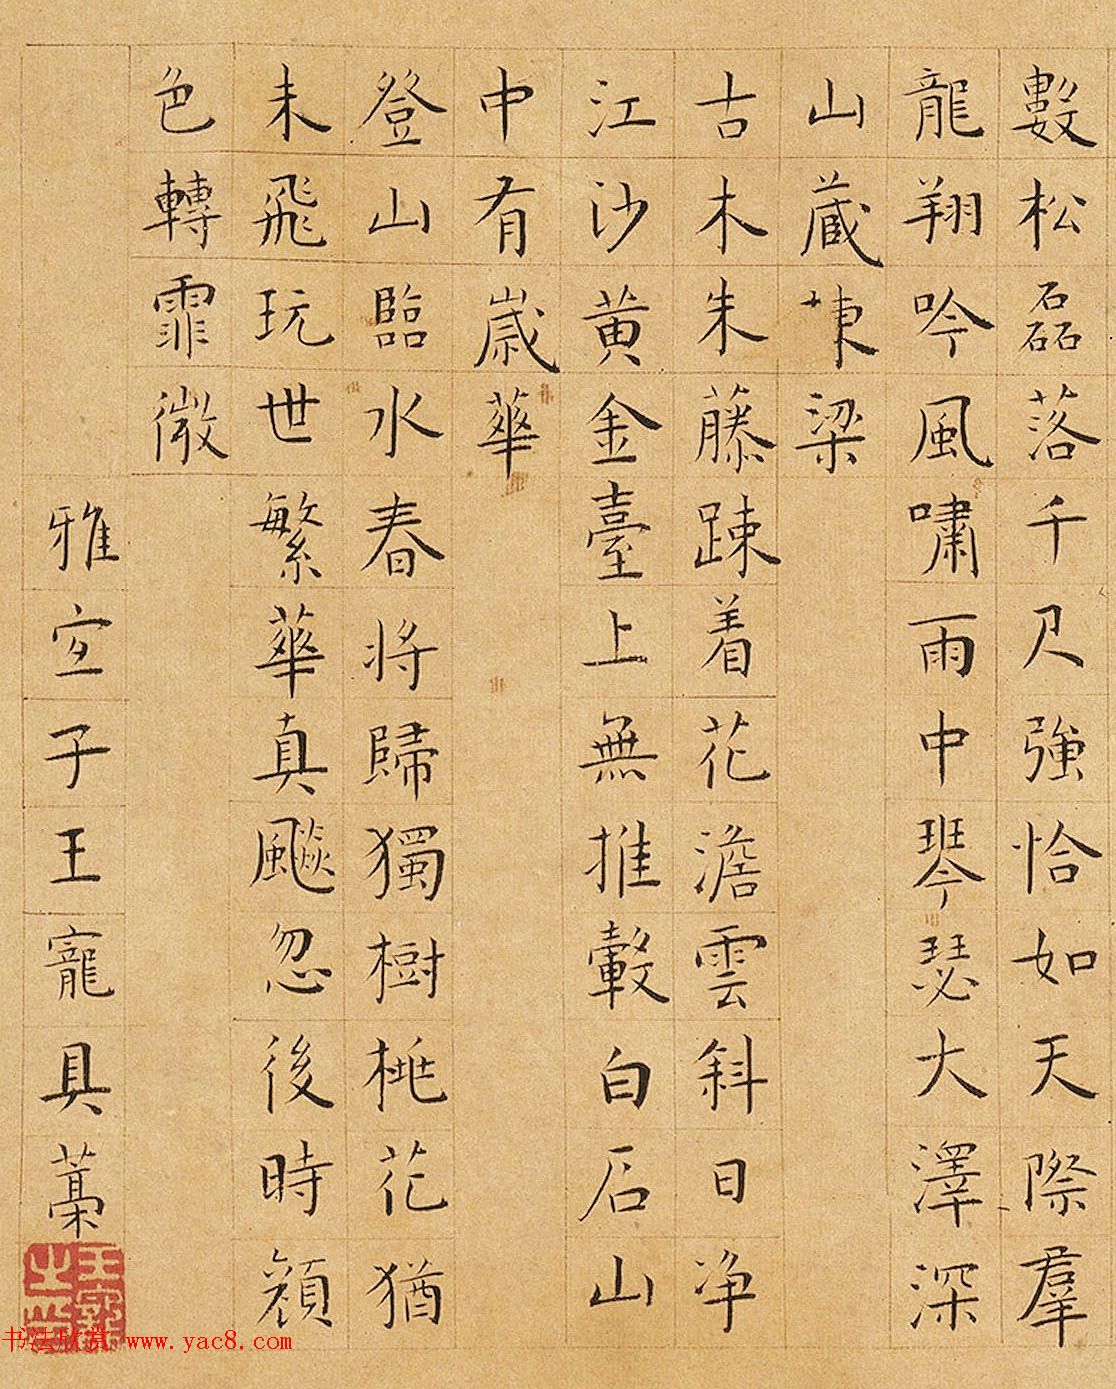 數松磊落千尺強恰如天際羣
龍翔吟風嘯雨中琴瑟大澤深
山蔵棟梁
古木朱藤踈着花澹雲斜日净
江沙黄金臺上無推轂白石山
中有歳華
登山臨水春将歸獨樹桃花猶
未飛玩世繁華真飈忽後時顔
色轉霏微
雅宜子王寵具藁
王寵
书法欣赏 www.yac8.com